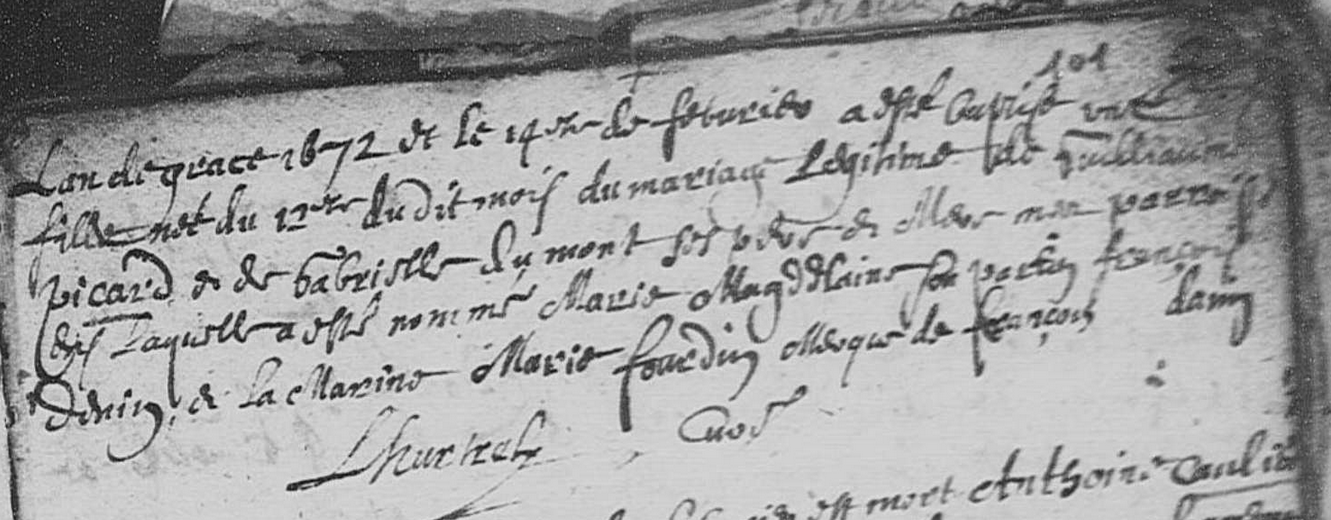 101
Lan de grace 1672 et le 14me de febvrier a esté baptisé une
fille net du 12me dudit mois du mariage Legitime de Guilliaume
picard et de Gabrielle du mont ses pere et Mere mes parrois
siens Laquelle a esté nommé Marie Magdelaine son parin françois
Denin, et la Marine Marie fourdin Merque de françois danin
Lhurtrel Curé
est mort Anthoine Caulie